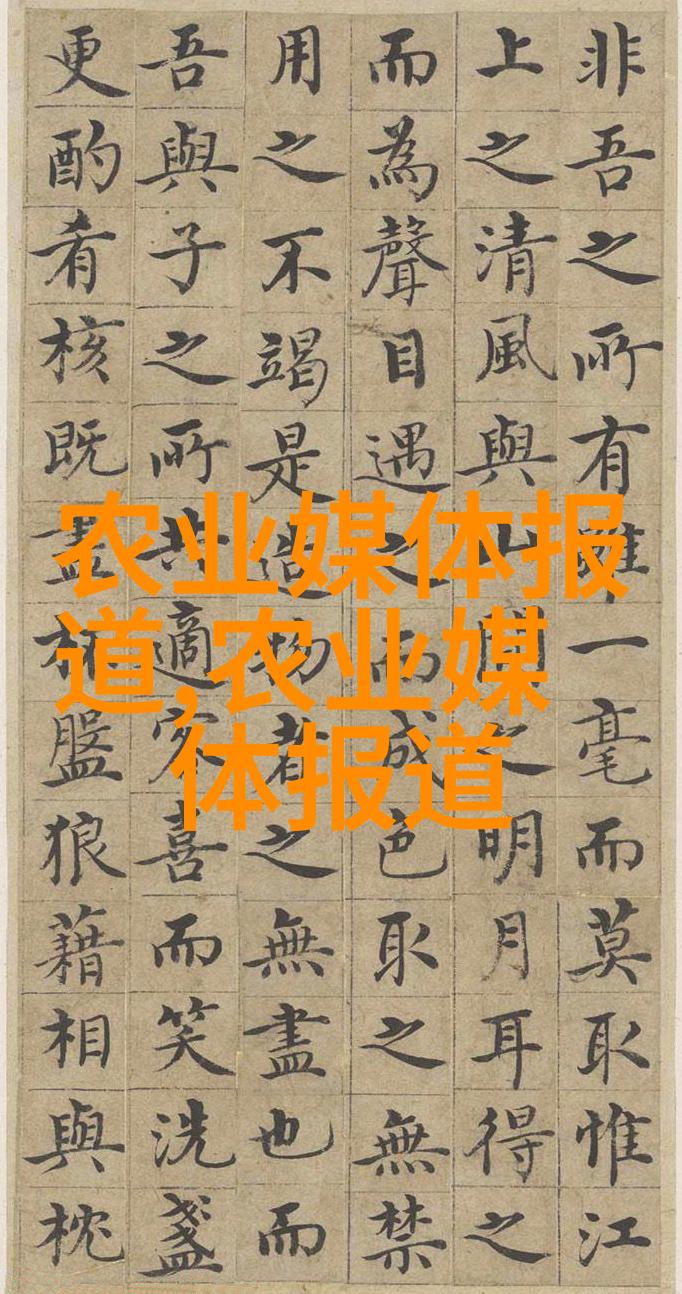 非吾之所有雖一毫而莫取惟江
上之清風與山間之明月耳得之
而為聲目遇之而成色取之無禁
用之不竭是造物者之無盡也而
吾與子之所共適客喜而笑洗盞
更酌肴核既盡杯盤狼藉相與枕
农业媒体报
道,农业媒
体报道